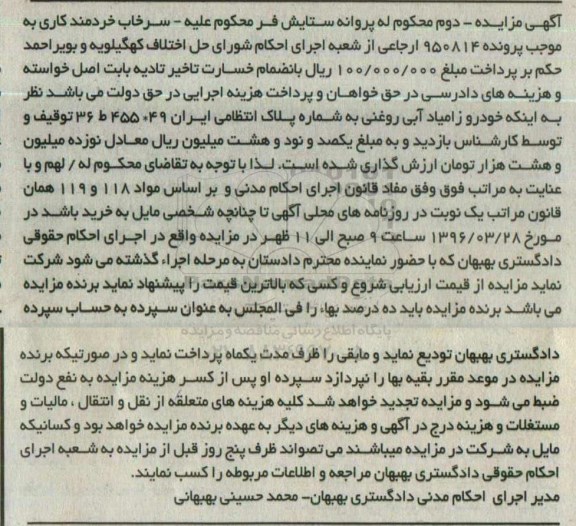 آگهـی مزایـده - دوم محکوم له پروانه سـتایش فـر محکوم علیه - سـرخاب خردمند کاری به
موجب پرونده ۹۵۰۸۱۴ ارجاعی از شعبه اجرای احکام شورای حل اختلاف کهگیلویه و بویراحمد
حکم بر پرداخت مبلغ ۱۰۰/۰۰۰/۰۰۰ ریال بانضمام خسارت تاخیر تادیه بابت اصل خواسته
و هزینـه های دادرسی در حق خواهـان و پرداخت هزینه اجرایی در حق دولت می باشد نظر
بـه اینکه خودرو زامیاد آبی روغنی به شماره پـلاک انتظامی ایـران ۴۹ـ ۴۵۵ ط ۳۶ توقیف و
توسـط کارشـناس بازدید و به مبلغ یکصد و نود و هشت میلیون ریال معـادل نوزده میلیون
و هشـت هزار تومان ارزش گذاری شـده اسـت. لـذا با توجه به تقاضای محکـوم له / لهم و با
عنایت به مراتب فوق وفق مفاد قانون اجرای احکام مدنی و بر اساس مواد ۱۱۸ و ۱۱۹ همان
قانون مراتب یک نوبت در روزنامه های محلی آگهی تا چنانچه شـخصی مایل به خرید باشـد در
مـورخ ۱۳۹۶/۰۳/۲۸ سـاعت ۹ صبح الی ۱۱ ظهـر در مزایده واقع در اجـرای احکام حقوقی
دادگستری بهبهان که با حضور نماینده محترم دادستان به مرحله اجراء گذشته می شود شرکت
نماید مزایده از قیمت ارزیابی شروع و کسی که بالاترین قیمت را پیشنهاد نماید برنده مزایده
می باشـد برنده مزایده باید ده درصد بهاء را فی المجلس به عنوان سـپرده به حسـاب سپرده
پایگاه اطلاع رسانی مناقصه و مزایده
دادگستری بهبهان تودیع نماید و مابقی را ظرف مدت یکماه پرداخت نماید و در صورتیکه برنده
مزایده در موعد مقرر بقیه بها را نپردازد سپرده او پس از کسـر هزینه مزایده به نفع دولت
ضبط می شود و مزایده تجدید خواهد شـد کلیه هزینه های متعلقه از نقل و انتقال ، مالیات و
مستغلات و هزینه درج در آگهی و هزینه های دیگر به عهده برنده مزایده خواهد بود و کسانیکه
مایل به شـرکت در مزایده میباشـند می تصواند ظرف پنج روز قبل از مزایده به شـعبه اجرای
احکام حقوقی دادگستری بهبهان مراجعه و اطلاعات مربوطه را کسب نمایند.
مدیر اجرای احکام مدنی دادگستری بهبهان- محمد حسینی بهبهانی